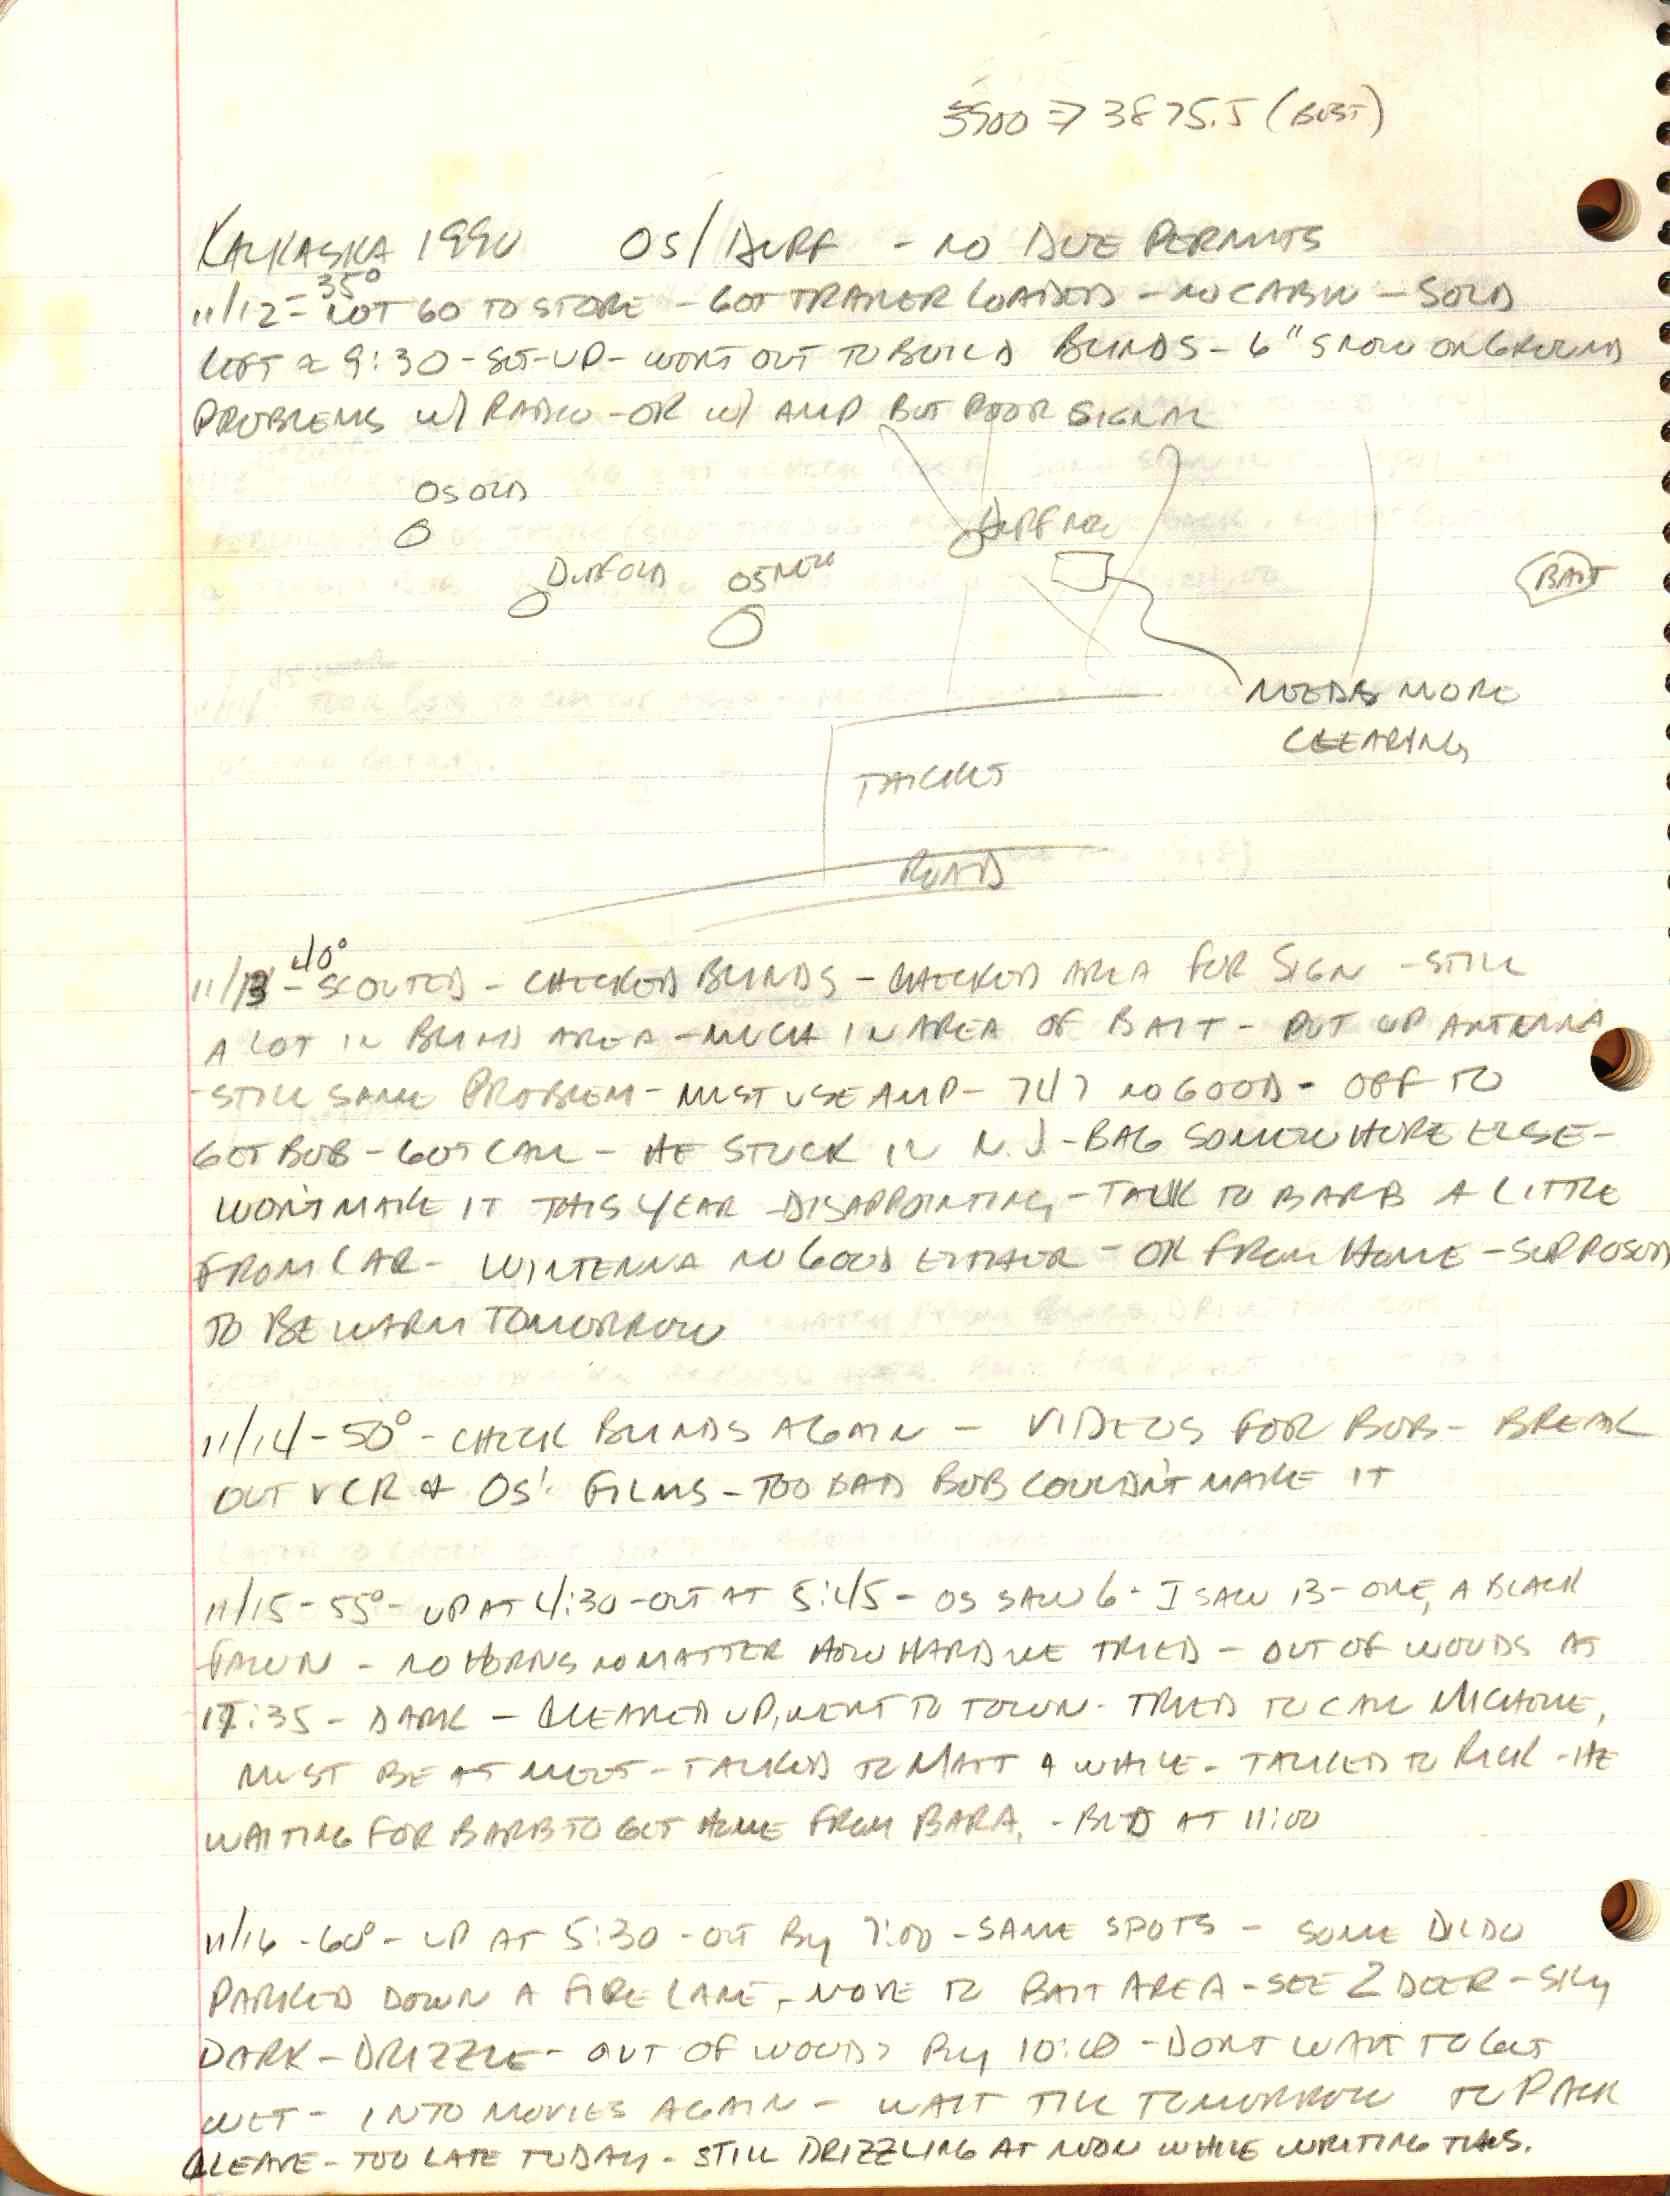 3900 => 3875.5 (BUST)
KALKASKA 1990 OS/DURF - NO DOE PERMITS
35°
11/12 - LOT GO TO STORE - GOT TRAILER LOADED - NO CABIN - SOLD
LEFT ≈ 9:30 - SET-UP - WENT OUT TO BUILD BLINDS - 6" SNOW ON GROUND
PROBLEMS W/ RADIO - OK W/ AMP BUT POOR SIGNAL
OS OLD
DURF NEW
DURF OLD
OS NEW
BAIT
NEEDS MORE
CLEARING
THICKETS
ROAD
40°
11/13 - SCOUTED - CHECKED BLINDS - CHECKED AREA FOR SIGN - STILL
A LOT IN BLIND AREA - MUCH IN AREA OF BAIT - PUT UP ANTENNA
- STILL SAME PROBLEM - MUST USE AMP - 747 NO GOOD - OFF TO
GET BOB - GOT CALL - HE STUCK IN N.J. - BAG SOMEWHERE ELSE -
WON'T MAKE IT THIS YEAR - DISAPPOINTING - TALK TO BARB A LITTLE
FROM CAR - WINTENNA NO GOOD EITHER - OK FROM HOME - SUPPOSED
TO BE WARM TOMORROW
11/14 - 50° - CHECK BLINDS AGAIN - VIDEOS FOR BOB - BREAK
OUT VCR & OS' FILMS - TOO BAD BOB COULDN'T MAKE IT
11/15 - 55° - UP AT 4:30 - OUT AT 5:45 - OS SAW 6 - I SAW 13 - ONE, A BLACK
FAWN - NO HORNS NO MATTER HOW HARD WE TRIED - OUT OF WOODS AT
17:35 - DARK - CLEANED UP, WENT TO TOWN - TRIED TO CALL MICHELLE,
MUST BE AT MEET - TALKED TO MATT A WHILE - TALKED TO RICK - HE
WAITING FOR BARB TO GET HOME FROM BARA. - BED AT 11:00
11/16 - 60° - UP AT 5:30 - OUT BY 7:00 - SAME SPOTS - SOME DILDO
PARKED DOWN A FIRE LANE - MOVE TO BAIT AREA - SEE 2 DEER - SKY
DARK - DRIZZLE - OUT OF WOODS BY 10:00 - DONT WANT TO GET
WET - INTO MOVIES AGAIN - WAIT TILL TOMORROW TO PACK
& LEAVE - TOO LATE TODAY - STILL DRIZZLING AT NOON WHILE WRITING THIS.